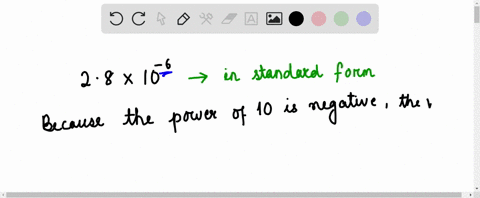 2.8 × 10⁻⁶ → in standard form
Because the power of 10 is negative, the